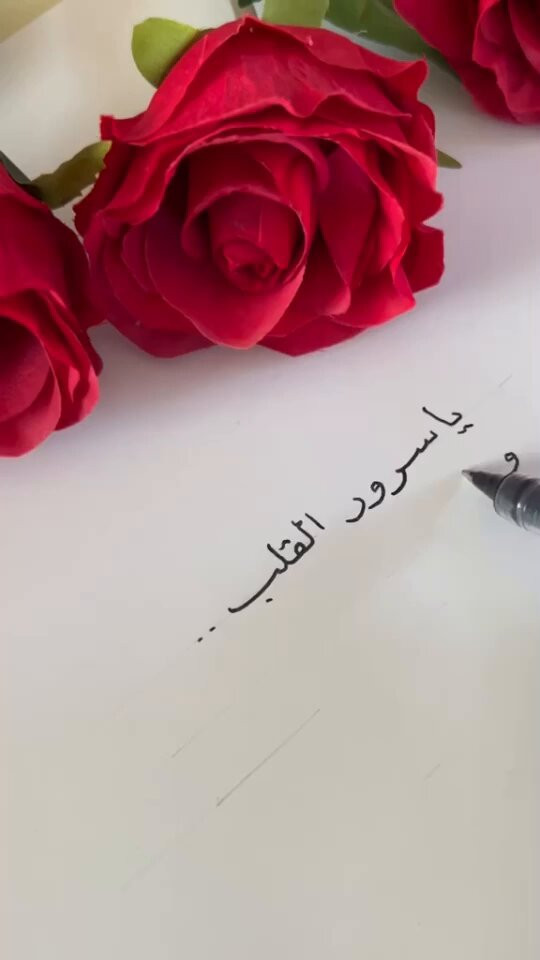 يا سرور القلب ..
و